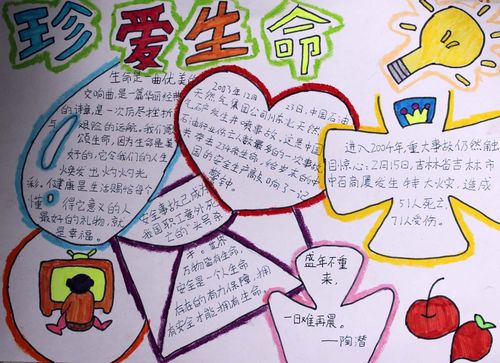 珍爱生命
生命是一曲优美的
交响曲,是一篇华丽经典
的诗章,是一次历尽挫折
与艰险的远航,我们歌
颂生命,因为生命是美
好的,它令我们的人生
焕发出灼灼光
彩。健康是生活赐给每个
懂得它意义的人
最好的礼物,就
是幸福。
2003年12月23日,中国石油
天然气集团公司川东北天然
气矿发生井喷事故,这是中国
石油行业伤亡人数最多的一次事故
带走243条生命,给未来的中
国的安全生产敲响了一记
警钟。
进入2004年,重大事故仍然触
目惊心,2月15日,吉林省吉林市
中百商厦发生特大火灾,造成
51人死亡,
71人受伤。
安全事故已成为
我国职工意外死
亡的“头号杀
手”。世界
万物皆有生命,
安全是一个人生命
存在的有力保障,拥
有安全才能拥有生命
盛年不重
来,
一日难再晨。
——陶潜